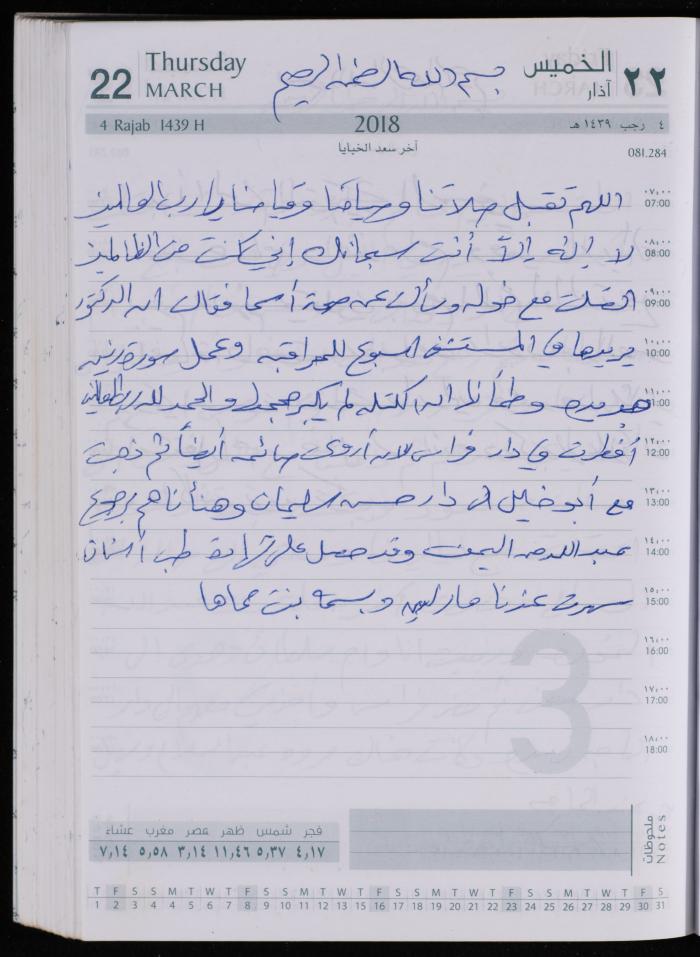 22 Thursday MARCH بسم الله الرحمن الرحيم الخميس آذار ٢٢
4 Rajab 1439 H 2018 ٤ رجب ١٤٣٩ هـ
آخر سعد الخبايا 081.284
٠٧:٠٠ 07:00 اللهم تقبل صلاتنا وصيامنا وقيامنا يا رب العالمين
٠٨:٠٠ 08:00 لا إله إلا أنت سبحانك إني كنت من الظالمين
٠٩:٠٠ 09:00 اتصلت مع خوله وسألت عن صحة أسما فقالت ان الدكتور
١٠:٠٠ 10:00 يريدها في المستشفى اسبوع للمراقبه وعمل سورة رنين
١١:٠٠ 11:00 وطمأننا ان الكتله لم يكبر حجمها والحمد لله رب العالمين
١٢:٠٠ 12:00 أفطرت في دار فراس لان أروى صائمه أيضاً ثم ذهبت
١٣:٠٠ 13:00 مع أبو خليل الى دار حسن سليمان وهنأناهم برجوع
١٤:٠٠ 14:00 عبد الله من اليمن وقد حصل على شهادة طب أسنان
١٥:٠٠ 15:00 سهرت عندنا مارلين وبسمة بنت حماها
١٦:٠٠ 16:00
١٧:٠٠ 17:00
١٨:٠٠ 18:00
3
ملحوظات Notes
فجر شمس ظهر عصر مغرب عشاء
٤,١٧ ٥,٣٧ ١١,٤٦ ٣,١٤ ٥,٥٨ ٧,١٤
T F S S M T W T F S S M T W T F S S M T W T F S S M T W T F S
1 2 3 4 5 6 7 8 9 10 11 12 13 14 15 16 17 18 19 20 21 22 23 24 25 26 27 28 29 30 31